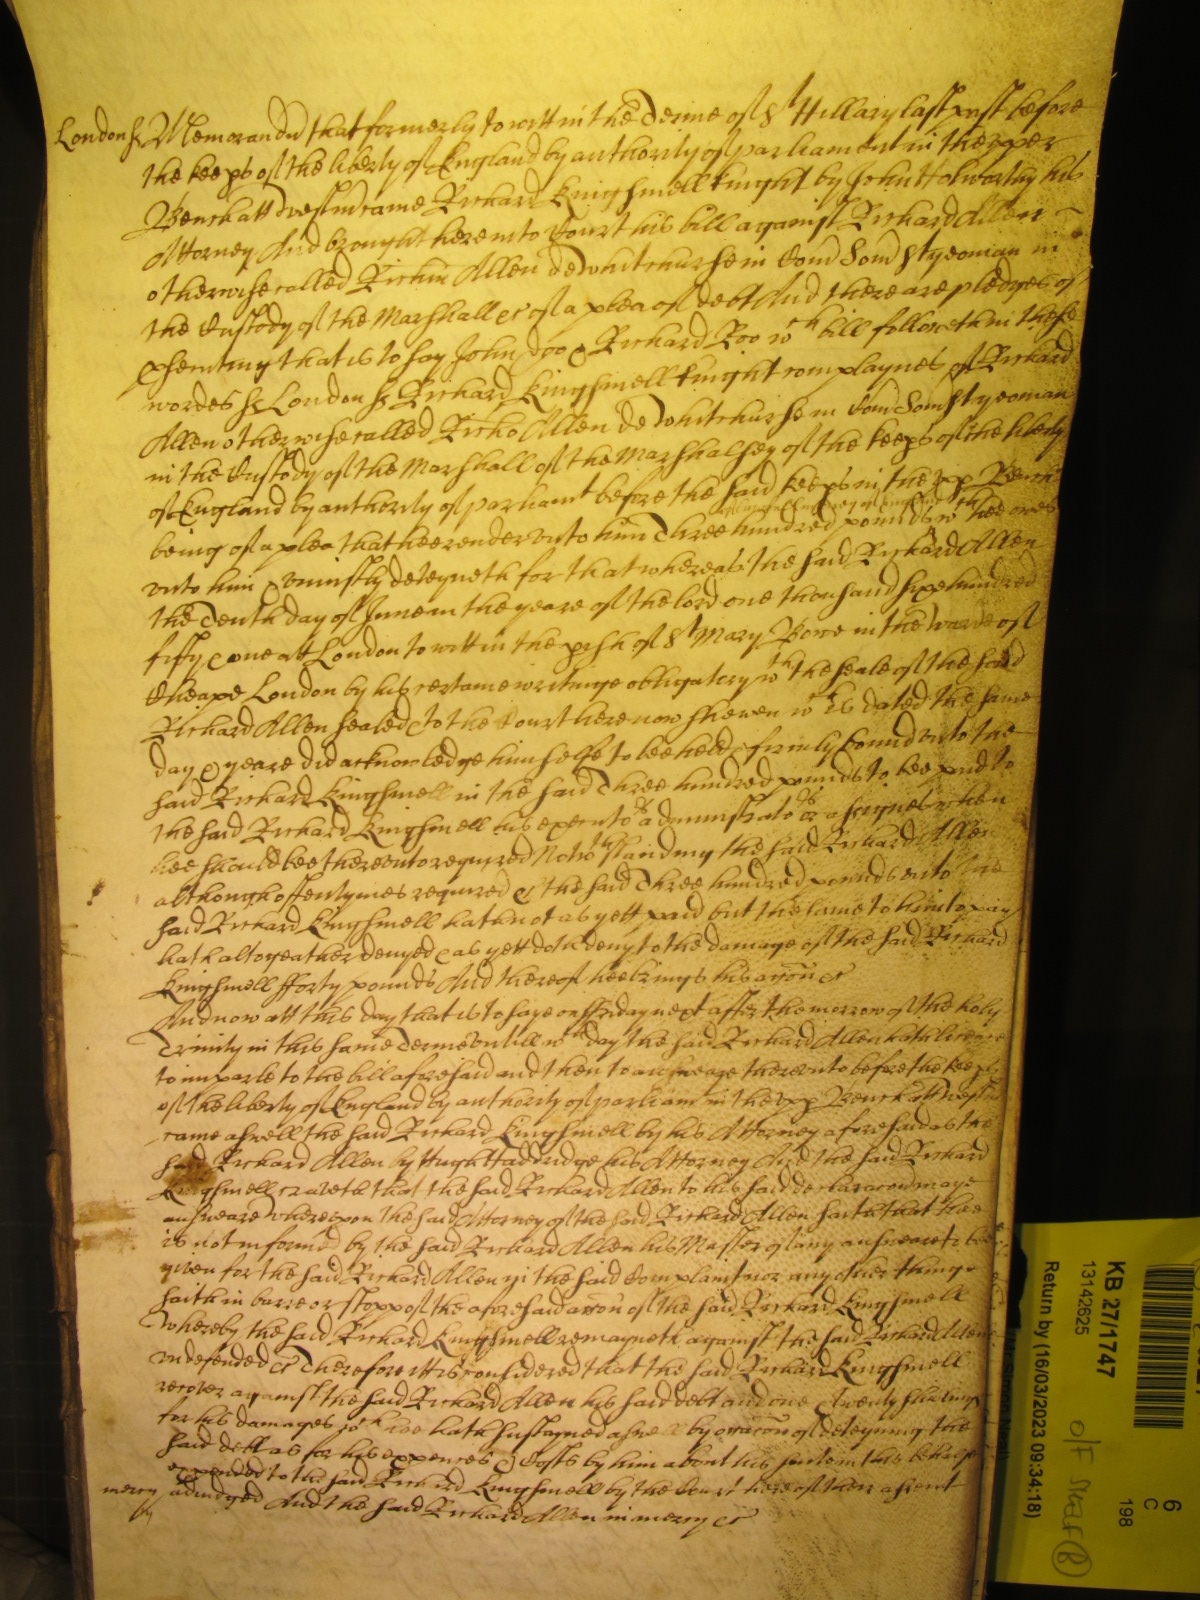 London ss Memorandu that formerly to witt in the Terme of St Hillary last past before
the keeps of the liberty of England by authority of parliament in the upper
Bench att Westm came Richard Kingsmell knight by John Holworthy his
Attorney And brought here into Court his bill against Richard Allen
otherwise called Richm Allen de Whitchurse in Com Som st yeoman in
the Custody of the Marshall &c of a plea of debt And there are pledges of
psenting that is to say John Doo & Richard Roo wch bill followeth in these
wordes ss London ss Richard Kingsmell knight complaynes of Richard
Allen otherwise called Richo Allen de Whitchurse in Com Som st yeoman
in the Custody of the Marshall of the Marshalsey of the keeps of the liberty
of England by authority of parliamt before the said keeps in the upp Bench
being of a plea that hee render unto him Three hundred pounds wch hee owes
unto him & uniustly deteyneth for that whereas the said Richard Allen
the Tenth day of June in the yeare of the lord one thousand sixe hundred
fifty & one att London to witt in the pish of St Mary Bowe in the Warde of
Cheape London by his certaine writinge obligatory wth the seale of the said
Richard Allen sealed & to the Court here now shewen wch is dated the same
day & yeare did acknowledge himselfe to bee held & firmly bound unto the
said Richard Kingsmell in the said Three hundred pounds to bee paid to
the said Richard Kingsmell his executors administrators or assignes when
hee should bee thereunto requyred Notwthstanding the said Richard Allen
although oftentymes required &c the said Three hundred pounds unto the
said Richard Kingsmell hath not as yett paid but the same to him to pay
hath altogeather denyed & as yett doth deny to the damage of the said Richard
Kingsmell fforty pounds And thereof hee brings his accon &c
And now att this day that is to saye on Friday next after the morrow of the holy
Trinity in this same Terme untill wch day the said Richard Allen hath licence
to imparle to the bill aforesaid and then to answeare thereunto before the keeps
of the liberty of England by authority of parliam in the upp Bench att Westm
came aswell the said Richard Kingsmell by his Attorney aforesaid as the
said Richard Allen by Hugh his Attorney And the said Richard
Kingsmell craveth that the said Richard Allen to his said declaracon maye
answeare whereupon the said Attorney of the said Richard Allen saith that hee
is not informed by the said Richard Allen his Master of any answeare to bee
given for the said Richard Allen in the said Complaint nor any other thinge
saith in barre or stopp of the aforesaid accon of the said Richard Kingsmell
Whereby the said Richard Kingsmell remayneth against the said Richard Allen
undefended &c Therefore itt is considered that the said Richard Kingsmell
recover against the said Richard Allen his said debt and one & twenty shillings
for his damages wch hee hath susteyned aswell by occacon of deteyning the
said debt as for his expences & Costs by him about his suite in this behalfe
expended to the said Richard Kingsmell by the Court here of their assent
mercy adiudged And the said Richard Allen in mercy &c
KB 27/1747
13142625
Return by (16/03/2023 09:34:18)
6
C
198